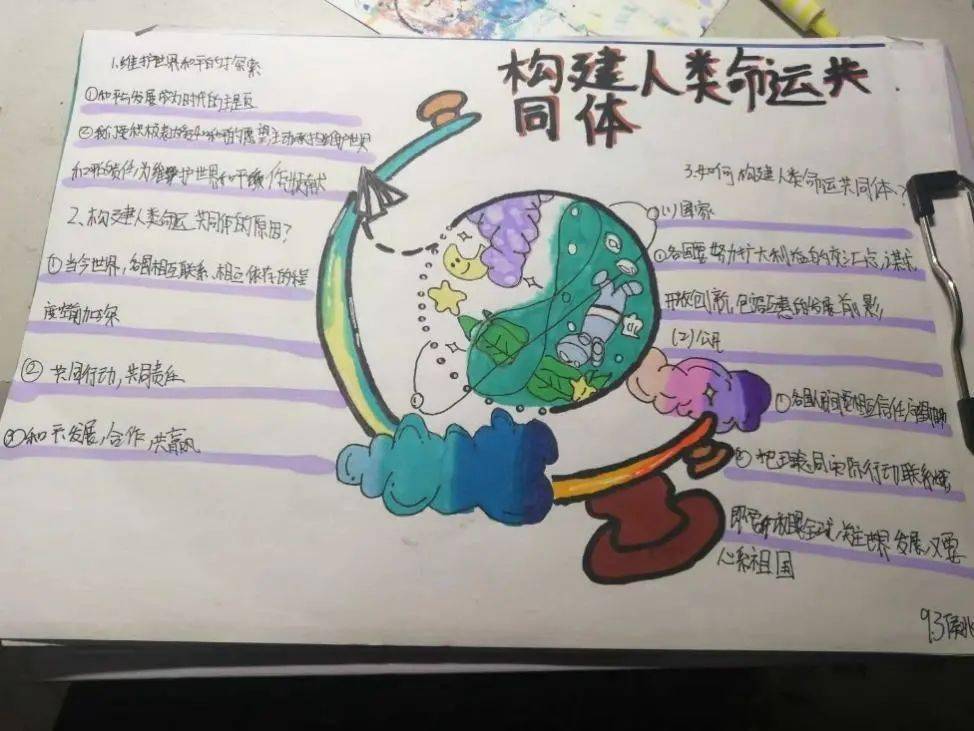 构建人类命运共
同体
1.维护世界和平的探索
①和平与发展成为时代的主题
②我们要积极 和平的愿望,主动承担维护世界
和平的责任,为维护世界和平 作贡献
2、构建人类命运共同体的原因?
①当今世界,各国相互联系、相互依存的程
度空前加深
② 共同行动,共同责任
③和平发展,合作,共赢
3.如何构建人类命运共同体?
(1)国家
①各国要努力扩大利益的交汇点,谋求
开放创新,包容互惠的发展前景,
(2)公民
①各国人民间要相互信任,
② 把理想同实际行动联系
即要 放眼全球,关注世界发展,又要
心系祖国
9.3